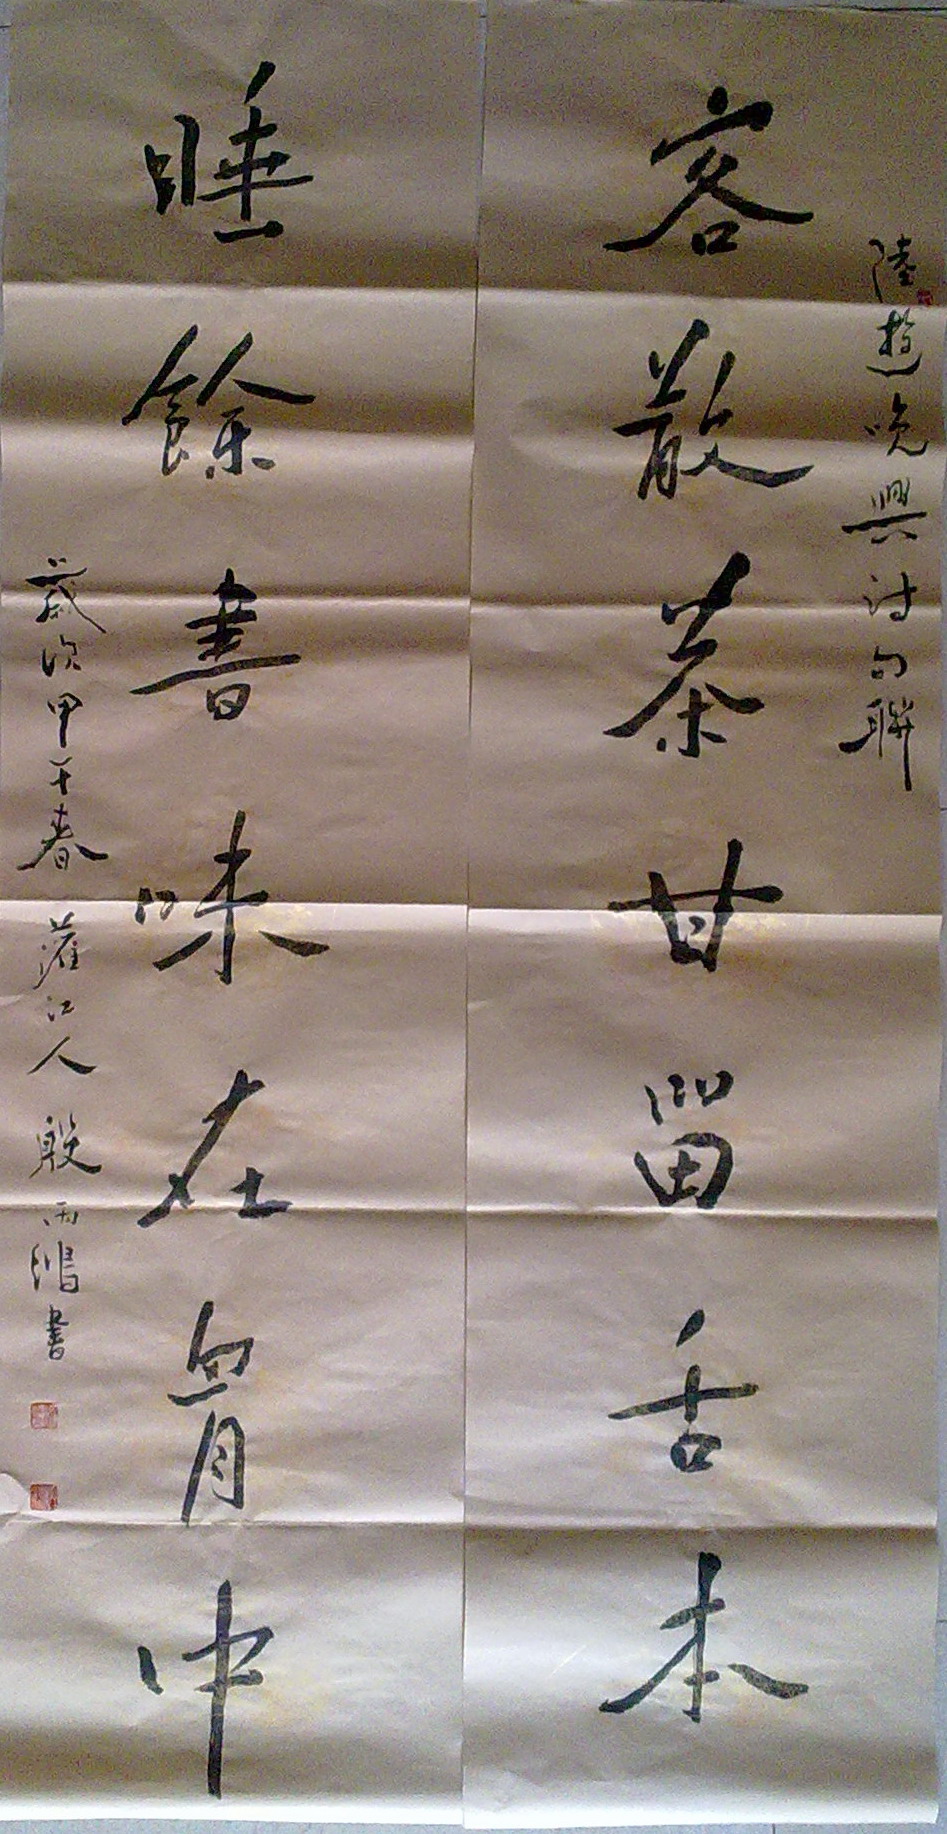 陸游晚興诗句聯
客散茶甘留舌本
睡餘書味在胷中
歲次甲午春 灌江人 殷雨鴻書